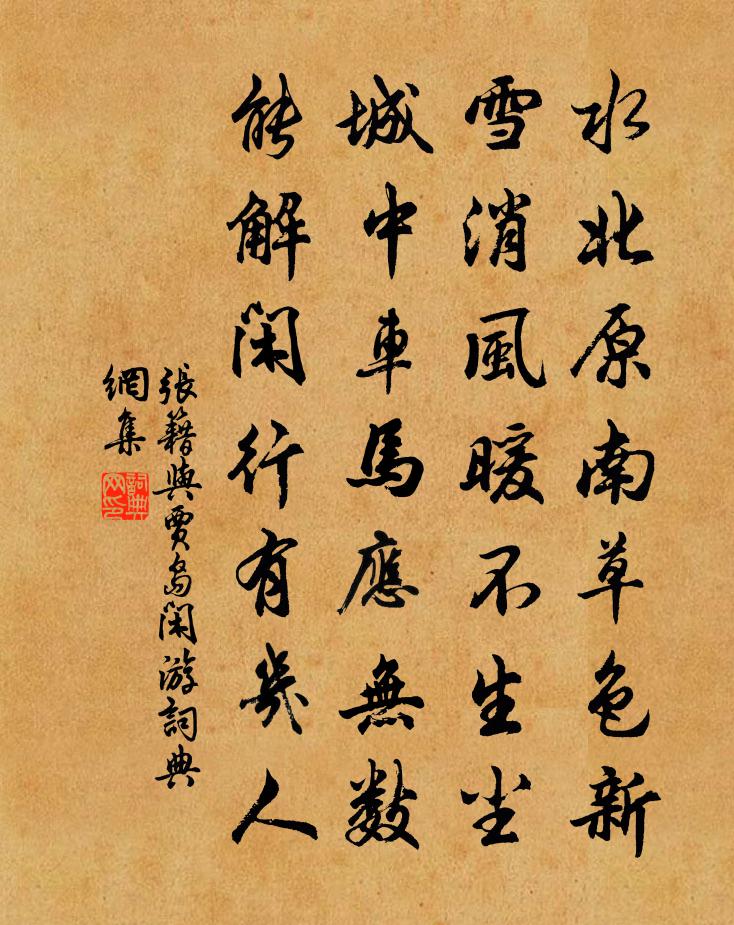 水北原南草色新
雪消風暖不生尘
城中車馬應無數
能解閑行有幾人
張籍與賈島閑游詞典
網集
詞典
网印